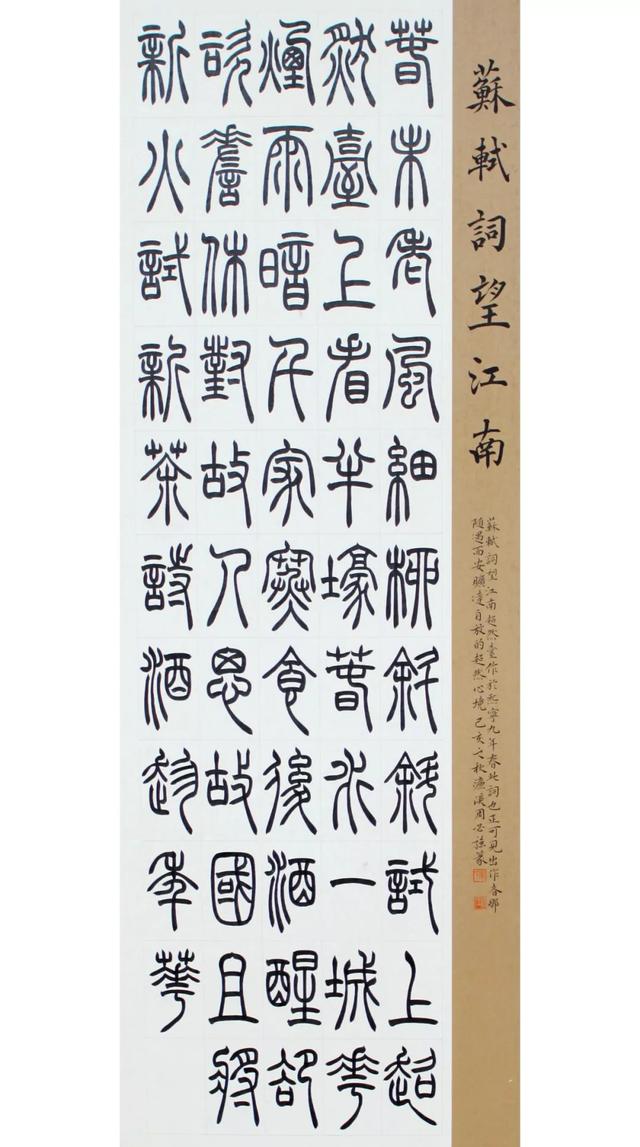 蘇軾詞望江南
蘇軾詞望江南超然臺作於熙寧九年春此詞也正可見出作者那
隨遇而安曠達自放的超然心境己亥之秋濂溪周必謙篆
春未老風細柳斜斜試上超
然臺上看半壕春水一城花
煙雨暗千家寒食後酒醒卻
咨嗟休對故人思故國且將
新火試新茶詩酒趁年華